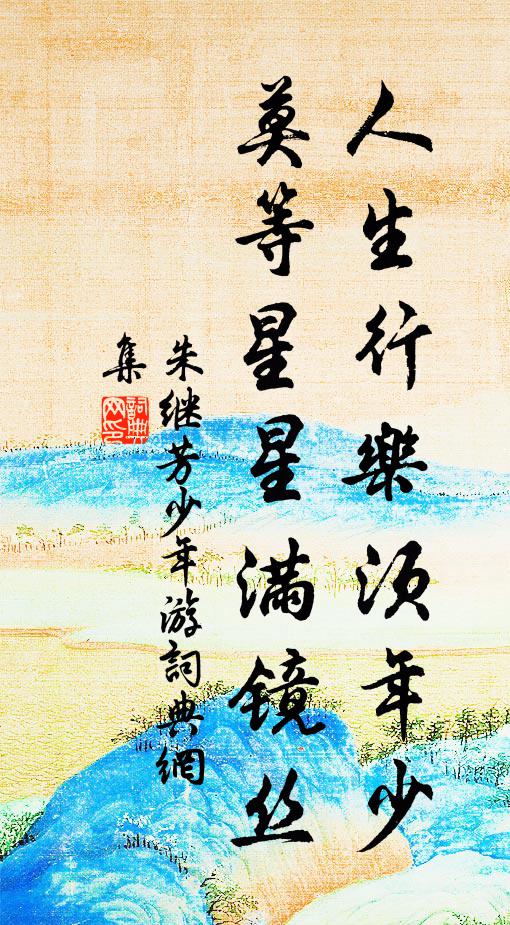 人生行樂须年少
莫等星星满镜丝
朱继芳少年游詞典網
集
詞典网印